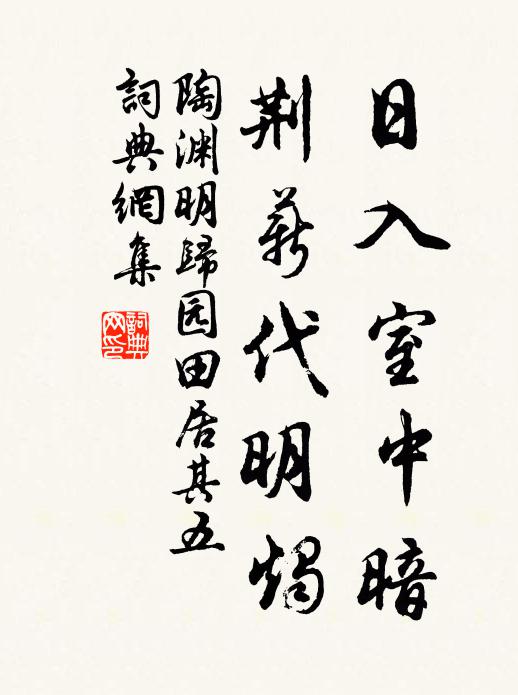 日入室中暗
荆薪代明燭
陶渊明歸园田居其五
詞典網集
詞典網印